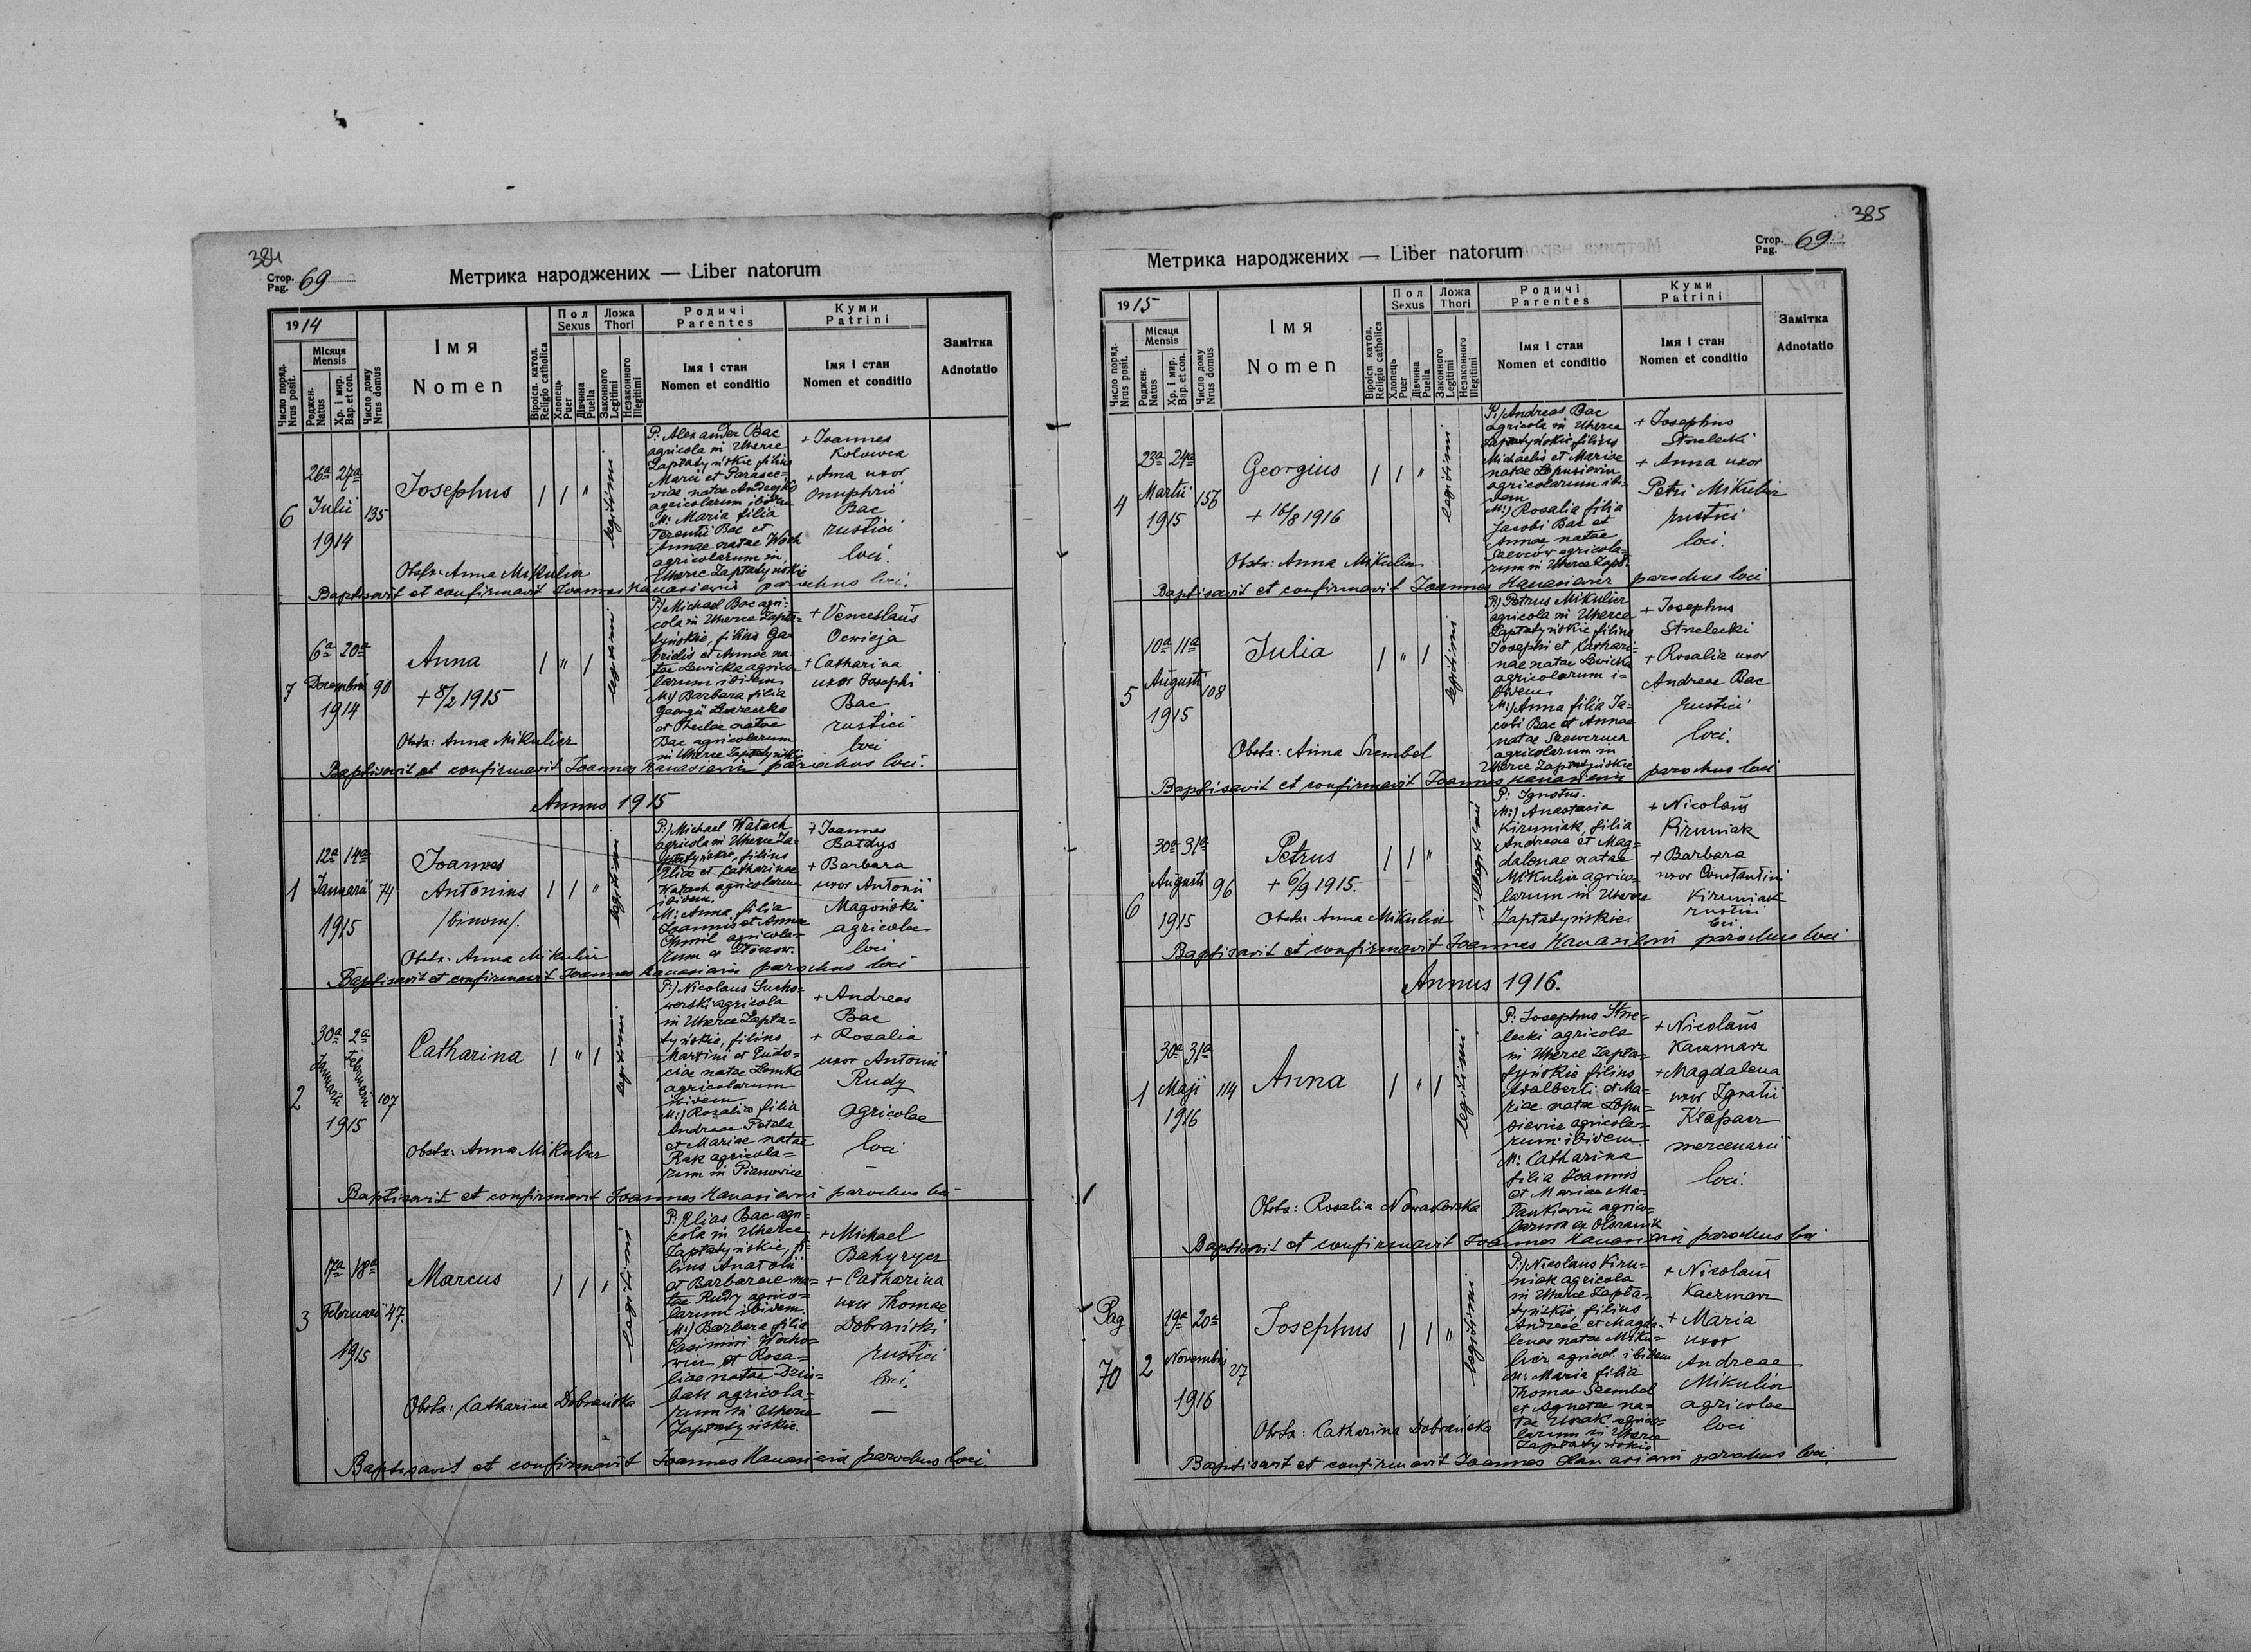 384
Стор.
Pag. 69
Метрика народжених — Liber natorum
1914
Число поряд.
Nrus posit.
Місяця
Mensis
Роджен.
Natus
Хр. і мир.
Bap. et con.
Число дому
Nrus domus
Імя
Nomen
Віроісп. катол.
Religio catholica
Пол
Sexus
Хлопець
Puer
Дівчина
Puella
Ложа
Thori
Законного
Legitimi
Незаконного
Illegitimi
Родичі
Parentes
Імя і стан
Nomen et conditio
Куми
Patrini
Імя і стан
Nomen et conditio
Замітка
Adnotatio
6
26a 27a
Julii
1914
135
Josephus
1 1 "
legitimi
P: Alexander Bac
agricola in Uherce
Zaplatyńskie filius
Marci et Parasce-
viae natae Andrejko
agricolarum ibidem
M: Maria filia
Terentii Bac et
Annae natae Woch
agricolarum in
Uherce Zaplatyńskie
+ Joannes
+ Anna uxor
Onuphrii
Bac
rustici
loci.
Obstx: Anna Mikulicz
Baptisavit et confirmavit Joannes Hanasiewicz parochus loci.
7
6a 20a
Decembris
1914
90
Anna
+ 8/2 1915
1 " 1
legitimi
P:) Michael Bac agri-
cola in Uherce Zapla-
tyńskie, filius Ga-
brielis et Annae na-
tae Lewicka agrico-
larum ibidem
M:) Barbara filia
Georgii
et Theclae natae
Bac agricolarum
in Uherce Zaplatyńskie
+ Venceslaus
Ocwieja
+ Catharina
uxor Josephi
Bac
rustici
loci
Obstx: Anna Mikulicz
Baptisavit et confirmavit Joannes Hanasiewicz parochus loci.
Annus 1915
1
12a 14a
Januarii
1915
74
Joannes
Antonius
/binom/.
1 1 "
legitimi
P:) Michael Watach
agricola in Uherce Za-
platyńskie, filius
Eliae et Catharinae
Watach agricolarum
ibidem.
M: Anna filia
Joannis et Annae
Chmil agricola-
rum
+ Joannes
Batdys
+ Barbara
uxor Antonii
Magoński
agricolae
loci
Obstx: Anna Mikulicz
Baptisavit et confirmavit Joannes Hanasiewicz parochus loci
2
30a 2a
Januarii Februarii
1915
107
Catharina
1 " 1
legitimi
P:) Nicolaus Sucho-
worski agricola
in Uherce Zapla=
tyńskie, filius
Martini et Eudo-
ciae natae Lemko
agricolarum
ibidem
M:) Rozalia filia
Andreae Potola
et Mariae natae
Rak agricola=
rum in Pianowice
+ Andreas
Bac
+ Rosalia
uxor Antonii
Rudy
agricolae
loci
—
Obstx: Anna Mikulicz
Baptisavit et confirmavit Joannes Hanasiewicz parochus loci
3
17a 18a
Februarii
1915
47.
Marcus
1 1 "
legitimi
P: Elias Bac agri-
cola in Uherce
Zaplatyńskie, fi-
lius Anatolii
et Barbarae na-
tae Rudy agrico-
larum ibidem.
M:) Barbara filia
Casimiri Wocho-
wicz et Rosa-
liae natae
agricola-
rum in Uherce
Zaplatyńskie.
+ Michael
Bahyrycz
+ Catharina
uxor Thomae
Dobrański
rustici
loci.
—
Obstx: Catharina Dobrańska
Baptisavit et confirmavit Joannes Hanasiewicz parochus loci.
385
Стор.
Pag. 69
Метрика народжених — Liber natorum
1915
Число поряд.
Nrus posit.
Місяця
Mensis
Роджен.
Natus
Хр. і мир.
Bap. et con.
Число дому
Nrus domus
Імя
Nomen
Віроісп. катол.
Religio catholica
Пол
Sexus
Хлопець
Puer
Дівчина
Puella
Ложа
Thori
Законного
Legitimi
Незаконного
Illegitimi
Родичі
Parentes
Імя і стан
Nomen et conditio
Куми
Patrini
Імя і стан
Nomen et conditio
Замітка
Adnotatio
4
23a 24a
Martii
1915
156
Georgius
+ 16/8 1916
1 1 "
legitimi
P:) Andreas Bac
agricola in Uherce
Zaplatyńskie filius
Michaelis et Mariae
natae Lopusiewicz
agricolarum ibi-
dem
M:) Rosalia filia
Jacobi Bac et
Annae natae
Szewców agricola=
rum in Uherce Zapl.
+ Josephus
Strelecki
+ Anna uxor
Petri Mikulicz
rustici
loci.
Obstx: Anna Mikulicz
Baptisavit et confirmavit Joannes Hanasiewicz parochus loci
5
10a 11a
Augusti
1915
108
Julia
1 " 1
legitimi
P:) Petrus Mikulicz
agricola in Uherce
Zaplatyńskie filius
Josephi et Cathari-
nae natae Lewicka
agricolarum i-
bidem
M:) Anna filia Ja-
cobi Bac et Annae
natae
agricolarum in
Uherce Zaplatyńskie
+ Josephus
Strzelecki
+ Rosalia uxor
Andreae Bac
rustici
loci.
Obstx: Anna Szembel
Baptisavit et confirmavit Joannes Hanasiewicz parochus loci
6
30a 31a
Augusti
1915
96
Petrus
+ 6/9 1915.
1 1 "
illegitimi
P: Ignotus.
M:) Anastasia
Kiruniak, filia
Andreae et Mag-
dalenae natae
Mikulicz agrico-
larum in Uherce
Zaplatyńskie.
+ Nicolaus
Kiruniak
+ Barbara
uxor Constantini
Kiruniak
rustici
loci.
Obstx: Anna Mikulicz
Baptisavit et confirmavit Joannes Hanasiewicz parochus loci
Annus 1916.
1
30a 31a
Maji
1916
114
Anna
1 " 1
legitimi
P: Josephus Stre-
lecki agricola
in Uherce Zapla=
tyńskie filius
Adalberti et Ma-
riae natae Lopu-
siewicz agricola-
rum ibidem.
M: Catharina
filia Joannis
et Mariae Ma-
agrico-
larum ex
+ Nicolaus
Kaczmarz
+ Magdalena
uxor Ignatii
Kłapacz
mercenarii
loci.
Obstx: Rosalia Nowakowska
Baptisavit et confirmavit Joannes Hanasiewicz parochus loci
Pag
70
2
19a 20a
Novembris
1916
27
Josephus
1 1 "
legitimi
P:) Nicolaus Kiru-
niak agricola
in Uherce Zapla-
tyńskie, filius
Andreae et Magda-
lenae natae Miku-
licz agricol. ibidem
M: Maria filia
Thomae Szembel
et Agnetae na-
tae agrico-
larum in Uherce
Zaplatyńskie
+ Nicolaus
Kaczmarz
+ Maria
uxor
Andreae
Mikulicz
agricolae
loci
Obstx: Catharina Dobrańska
Baptisavit et confirmavit Joannes Hanasiewicz parochus loci.